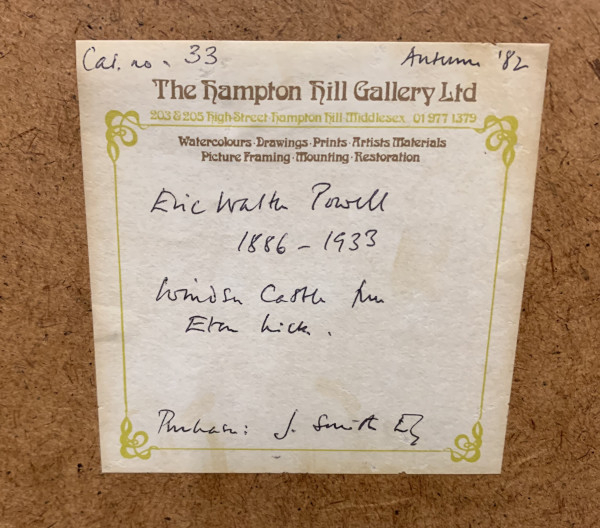 Cat. no. 33 Autumn '82
The Hampton Hill Gallery Ltd
203 & 205 High Street Hampton Hill Middlesex 01 977 1379
Watercolours · Drawings · Prints · Artists Materials
Picture Framing · Mounting · Restoration
Eric Walter Powell
1886 - 1933
Windsor Castle from
Eton Wick.
Purchaser: J. Smith Esq